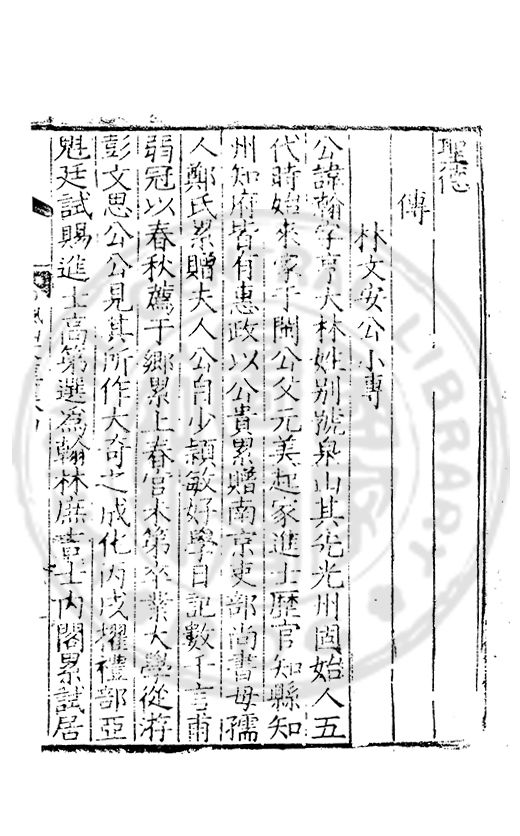 聖德
傳
林文安公小傳
公諱瀚字亨大林姓别號泉山其先光州固始人五
代時始來家于閩公父元美起家進士歴官知縣知
州知府皆有惠政以公貴累贈南京吏部尚書母孺
人鄭氏累贈夫人公自少穎敏好學日記數千言甫
弱冠以春秋薦于鄉累上春官未第卒業大學從游
彭文思公公見其所作大奇之成化丙戌擢禮部亞
魁廷試賜進士高第選爲翰林庶吉士内閣累試居